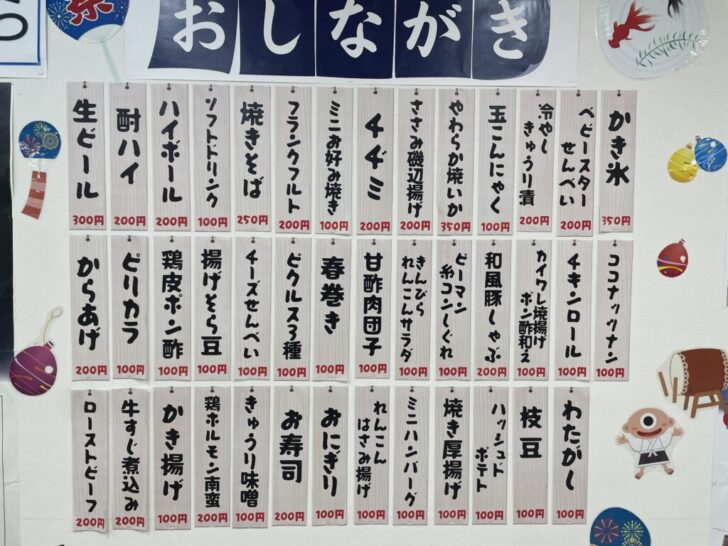 祭
おしながき
かき氷 350円
ベビースターせんべい 200円
冷やしきゅうり漬 200円
玉こんにゃく 100円
やわらか焼いか 350円
ささみ磯辺揚げ 200円
チヂミ 200円
ミニお好み焼き 100円
フランクフルト 200円
焼きそば 250円
ソフトドリンク 100円
ハイボール 200円
酎ハイ 200円
生ビール 300円
ココナッツナン 100円
チキンロール 100円
カイワレ焼揚げポン酢和え 100円
和風豚しゃぶ 200円
ピーマン糸コンしぐれ 100円
きんぴられんこんサラダ 100円
甘酢肉団子 100円
春巻き 100円
ピクルス3種 100円
チーズせんべい 100円
揚げそら豆 100円
鶏皮ポン酢 100円
ピリカラ 100円
からあげ 200円
わたがし 100円
枝豆 100円
ハッシュドポテト 100円
焼き厚揚げ 100円
ミニハンバーグ 100円
れんこんはさみ揚げ 100円
おにぎり 100円
お寿司 200円
きゅうり味噌 100円
鶏ホルモン南蛮 200円
かき揚げ 100円
牛すじ煮込み 200円
ローストビーフ 200円